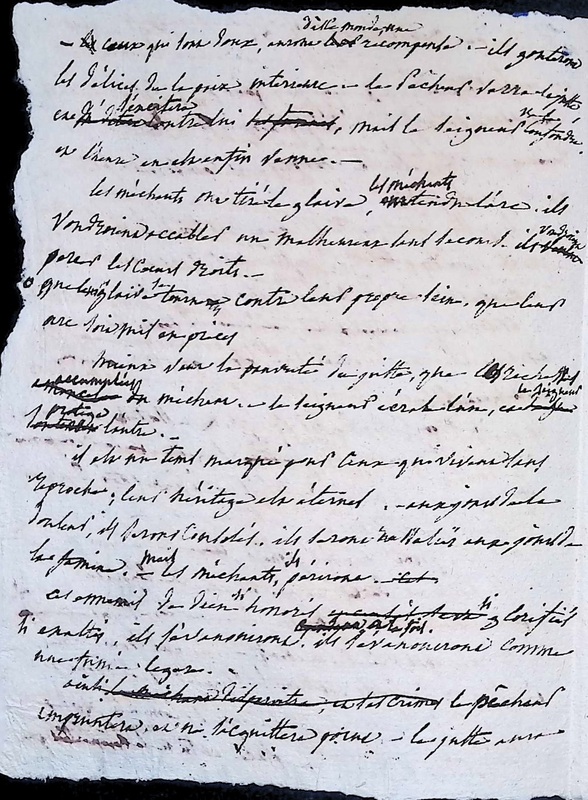 cette monde
- ceux qui sont doux, auront recompense. - ils gouteront
les délices de la paix interieure - le pécheur verra le juste,
contre lui, mais le seigneur
et l'heure en est enfin venue. -
les méchants ont tiré le glaive, les méchants ont tendu l'arc. ils
voudroient accabler un malheureux sans secours. ils
percer les coeurs droits. -
que le glaive se tourne contre leur propre sein, que leur
arc soit mis en pièces
mieux vaut la pauvreté du juste, que les richesses
accumulées du méchant - le seigneur écrase l'un, le seigneur
protège l'autre. -
il est un tems marqué pour ceux qui vivent sans
reproche; leur héritage est éternel. - aux jours de la
douleur, ils seront consolés. ils seront rassasiés aux jours de
la famine. - mais les méchants, ils périront.
ces ennemis de dieu si honorés si glorifiés
si exaltés, ils s'évanouiront. ils s'évanouiront comme
une fumée legere.
ainsi le pécheur
empruntera, et ne s'acquittera point - le juste aura